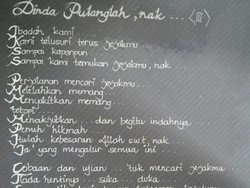 Dinda Pulanglah, nak ... <III>
Ibadah kami
Kami telusuri terus jejakmu
Sampai kapanpun
Sampai kami temukan jejakmu, nak ...
Perjalanan mencari jejakmu
Melelahkan memang
Menyakitkan memang
tetapi ...
Menakjubkan ... dan begitu indahnya
Penuh hikmah
Itulah kebesaran Allah swt, nak ...
'Ia' yang mengatur semua ini
Cobaan dan ujian ... 'tuk mencari jejakmu ...
Tiada hentinya ... suka ... duka ...